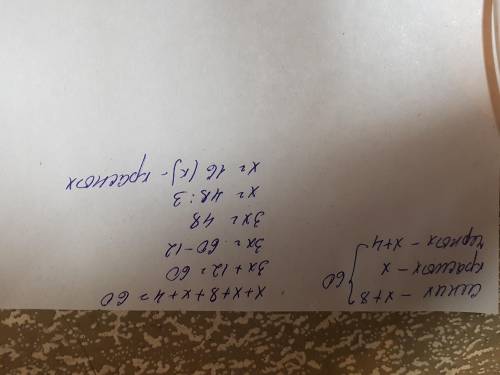 синих - x+8
красных - x
черных - x+4
60
x+x+8+x+4=60
3x+12=60
3x=60-12
3x=48
x=48:3
x=16 (к) - красных